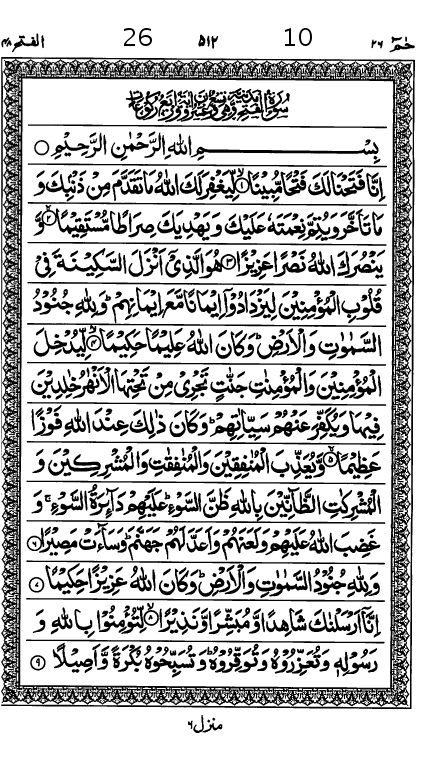 حٰمٓ ٢٦ 10 ٥١٢ 26 الفتح ٤٨
بِسْمِ اللهِ الرَّحْمٰنِ الرَّحِيْمِ ○
اِنَّا فَتَحْنَا لَكَ فَتْحًا مُّبِيْنًا ۙ﴿١﴾ لِّيَغْفِرَ لَكَ اللهُ مَا تَقَدَّمَ مِنْ ذَنْۢبِكَ وَ
مَا تَاَخَّرَ وَيُتِمَّ نِعْمَتَهٗ عَلَيْكَ وَ يَهْدِيَكَ صِرَاطًا مُّسْتَقِيْمًا ۙ﴿٢﴾ وَّ
يَنْصُرَكَ اللهُ نَصْرًا عَزِيْزًا ﴿٣﴾ هُوَ الَّذِيْۤ اَنْزَلَ السَّكِيْنَةَ فِيْ
قُلُوْبِ الْمُؤْمِنِيْنَ لِيَزْدَادُوْۤا اِيْمَانًا مَّعَ اِيْمَانِهِمْ ؕ وَلِلّٰهِ جُنُوْدُ
السَّمٰوٰتِ وَالْاَرْضِ ؕ وَكَانَ اللهُ عَلِيْمًا حَكِيْمًا ۙ﴿٤﴾ لِّيُدْخِلَ
الْمُؤْمِنِيْنَ وَالْمُؤْمِنٰتِ جَنّٰتٍ تَجْرِيْ مِنْ تَحْتِهَا الْاَنْهٰرُ خٰلِدِيْنَ
فِيْهَا وَيُكَفِّرَ عَنْهُمْ سَيِّاٰتِهِمْ ؕ وَكَانَ ذٰلِكَ عِنْدَ اللهِ فَوْزًا
عَظِيْمًا ۙ﴿٥﴾ وَّيُعَذِّبَ الْمُنٰفِقِيْنَ وَالْمُنٰفِقٰتِ وَالْمُشْرِكِيْنَ وَ
الْمُشْرِكٰتِ الظَّآنِّيْنَ بِاللهِ ظَنَّ السَّوْءِ ؕ عَلَيْهِمْ دَآئِرَةُ السَّوْءِ ۚ وَ
غَضِبَ اللهُ عَلَيْهِمْ وَلَعَنَهُمْ وَاَعَدَّ لَهُمْ جَهَنَّمَ ؕ وَسَآءَتْ مَصِيْرًا ﴿٦﴾
وَلِلّٰهِ جُنُوْدُ السَّمٰوٰتِ وَالْاَرْضِ ؕ وَكَانَ اللهُ عَزِيْزًا حَكِيْمًا ﴿٧﴾
اِنَّاۤ اَرْسَلْنٰكَ شَاهِدًا وَّ مُبَشِّرًا وَّ نَذِيْرًا ۙ﴿٨﴾ لِّتُؤْمِنُوْا بِاللهِ وَ
رَسُوْلِهٖ وَتُعَزِّرُوْهُ وَتُوَقِّرُوْهُ ؕ وَتُسَبِّحُوْهُ بُكْرَةً وَّاَصِيْلًا ﴿٩﴾
منزل ٦